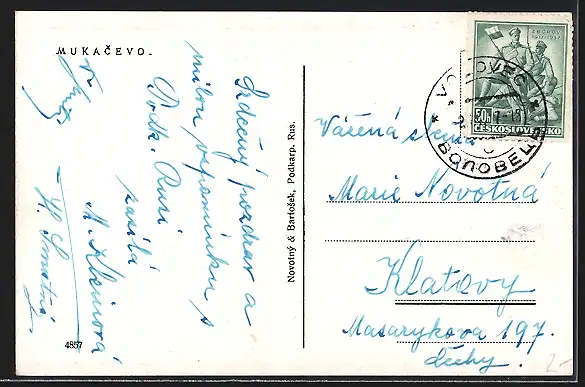 MUKAČEVO.
Srdečný pozdrav a
milou vzpomínku z
Podk. Rusi
zasílá
M. Kleinová
Novotný & Bartošek, Podkarp. Rus.
4857
ZBOROV
1917-1937
50h
ČESKOSLOVENSKO
VOLOVEC
ВОЛОВЕЦЬ
Vážená slečna
Marie Novotná
Klatovy
Masarykova 197.
Čechy.
2-